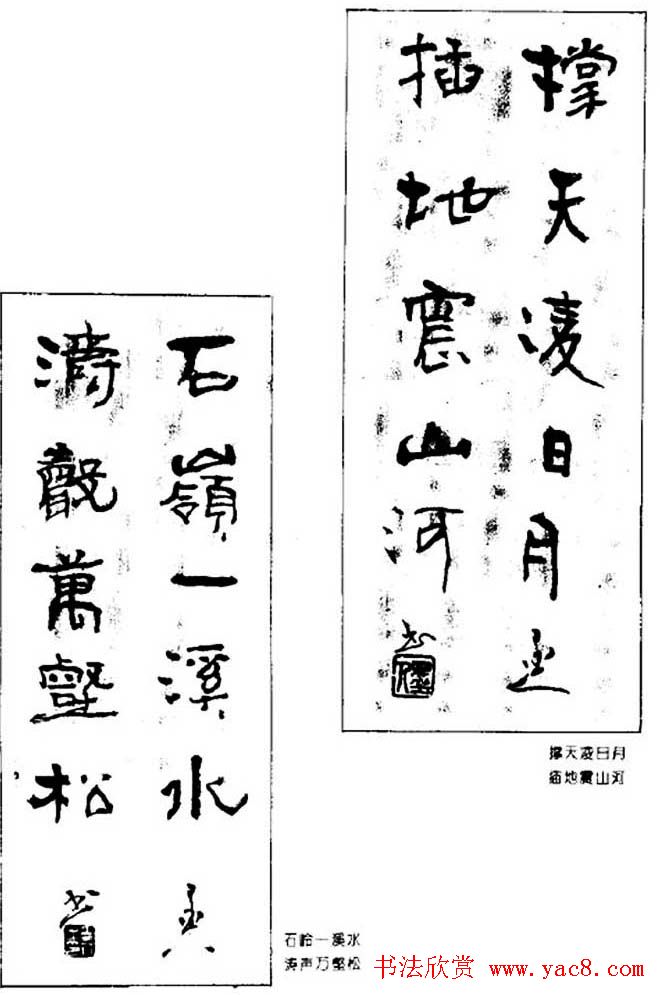 撑天凌日月
插地震山河
撑天凌日月
插地震山河
石嶺一溪水
濤聲萬壑松
石岭一溪水
涛声万壑松
书法欣赏 www.yac8.com